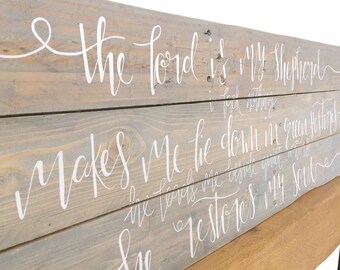 the Lord is my shepherd
I lack nothing
makes me lie down in green pastures
he leads me beside
he restores my soul